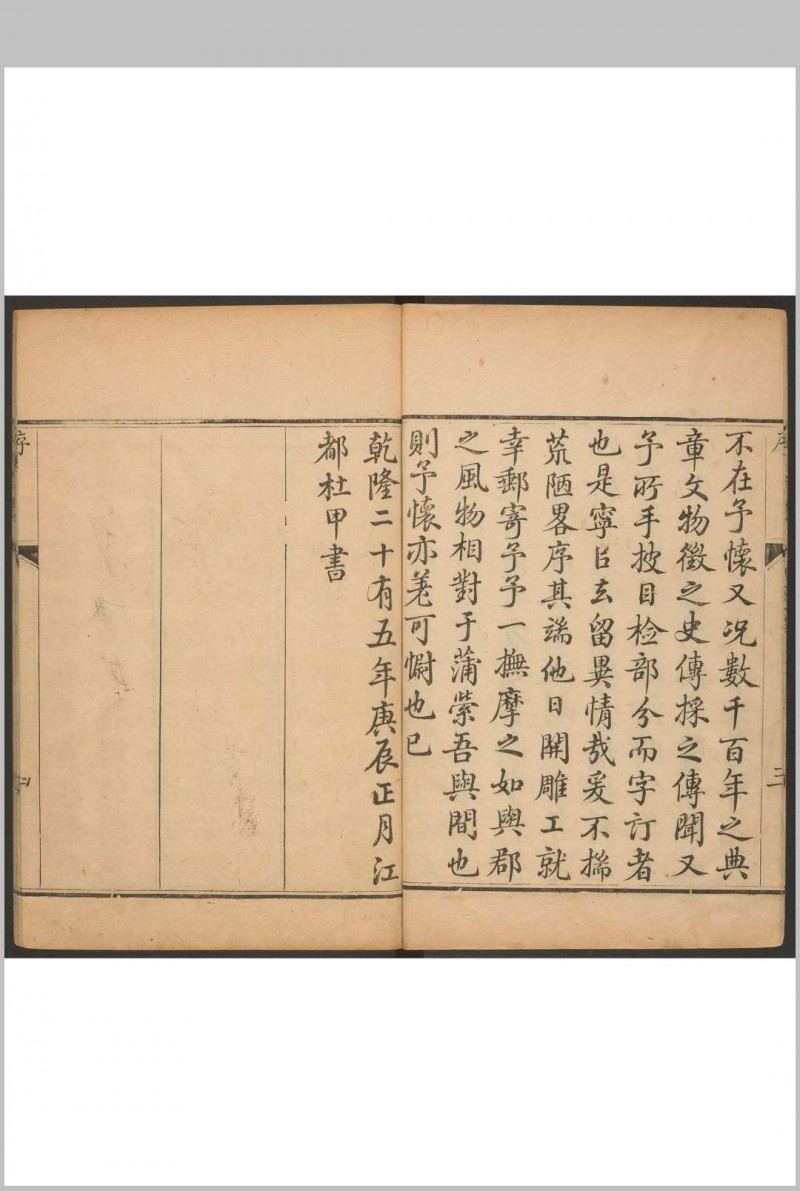 不在予懷又况數千百年之典
章文物徵之史傳採之傳聞又
予所手披目检部分而字訂者
也是寧㠯玄留異情哉爰不揣
荒陋畧序其端他日開雕工就
幸郵寄予予一撫摩之如與郡
之風物相對于蒲縈吾與間也
則予懷亦差可慰也已
乾隆二十有五年庚辰正月江
都杜甲書
序
三